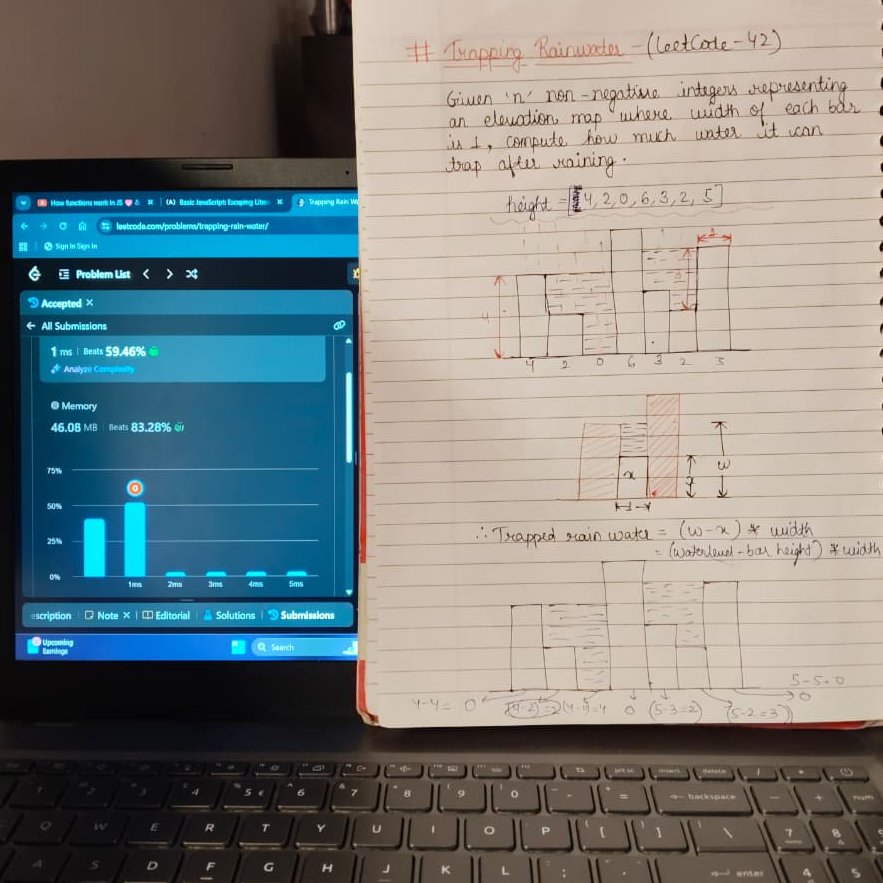 How functions work in JS
(A) Basic JavaScript: Escaping Liter
Trapping Rain Wa
leetcode.com/problems/trapping-rain-water/
Sign In Sign In
Problem List
Accepted
All Submissions
1 ms Beats 59.46%
Analyze Complexity
Memory
46.08 MB Beats 83.28%
75%
50%
25%
0%
1ms 2ms 3ms 4ms 5ms
scription Note Editorial Solutions Submissions
Upcoming
Earnings
Search
# Trapping Rainwater - (LeetCode - 42)
Given 'n' non-negative integers representing
an elevation map where width of each bar
is 1, compute how much water it can
trap after raining.
height = [4, 2, 0, 6, 3, 2, 5]
1
4
3
4 2 0 6 3 2 5
x
w
x
←1→
∴ Trapped rain water = (w-x) * width
= (waterlevel - bar height) * width
5-5=0
4-4= 0 (4-2)=2 (4-0)=4 0 (5-3=2) (5-2=3) 0
1 2 3 4 5 € 6 7 8 9 0 - = backspace num
Q W E R T Y U I O P [ ] \ 7 8
A S D F G H J K L ; ' enter 4 5